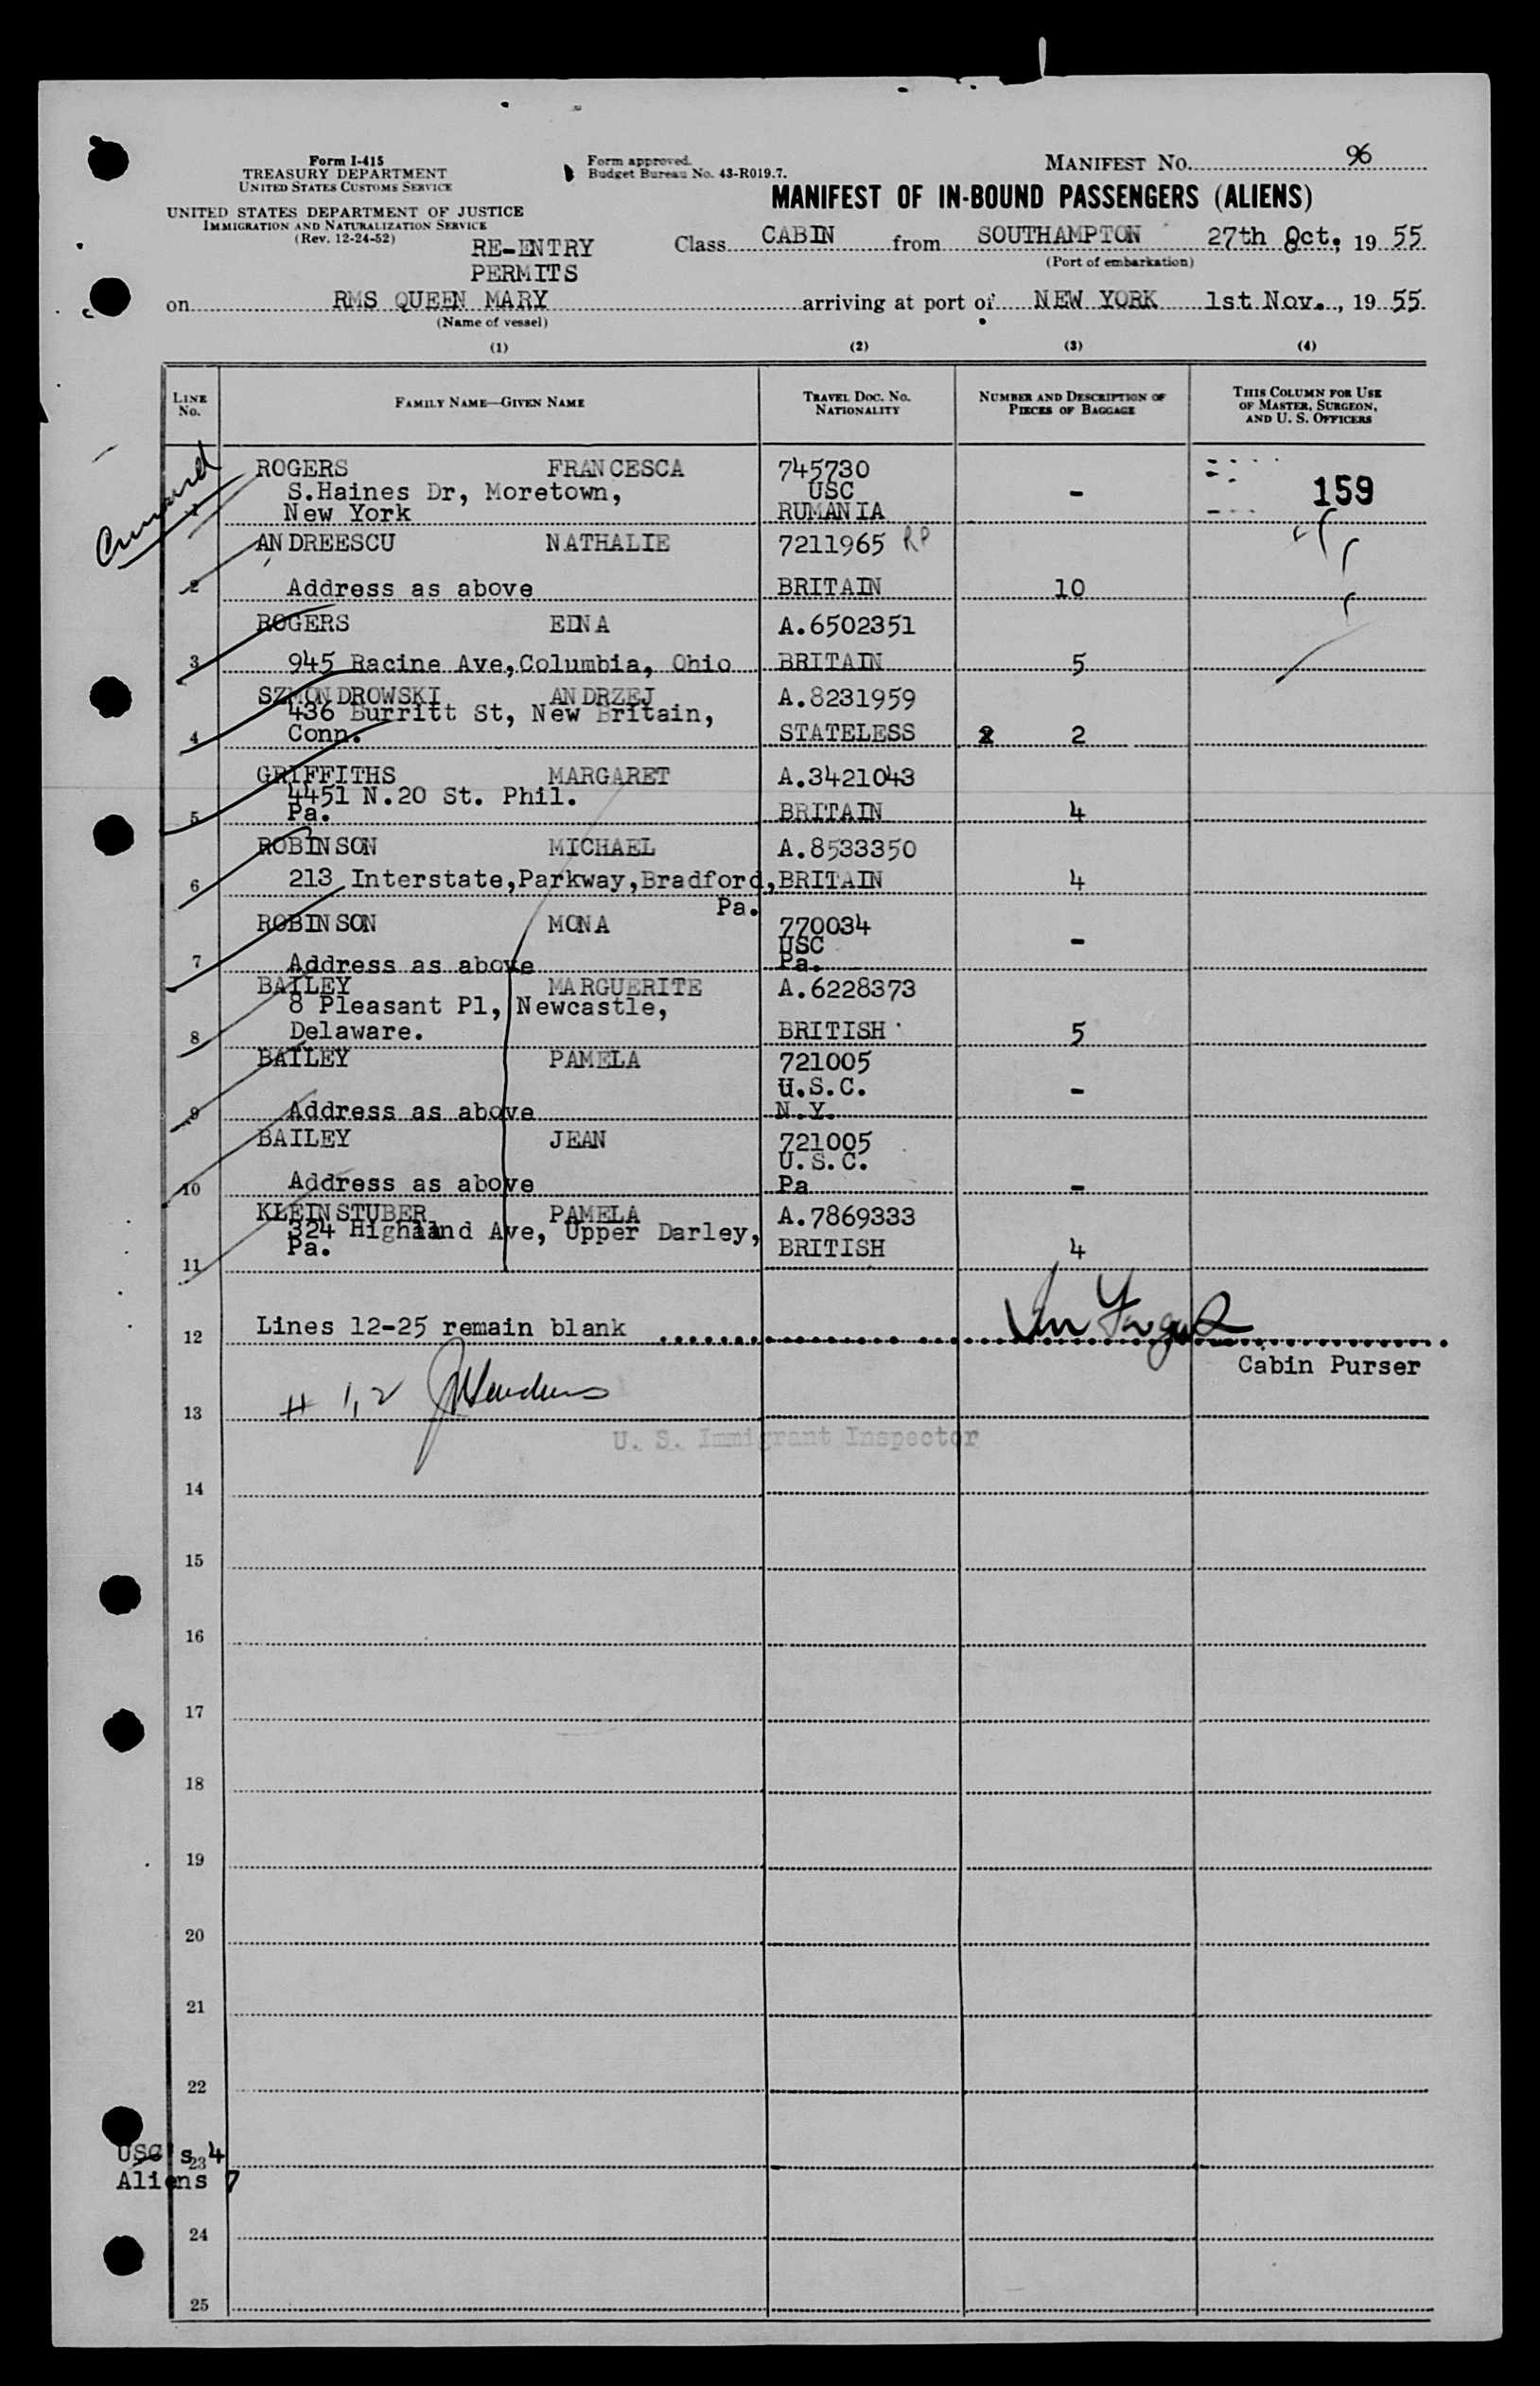 Form I-415
TREASURY DEPARTMENT
UNITED STATES CUSTOMS SERVICE
UNITED STATES DEPARTMENT OF JUSTICE
IMMIGRATION AND NATURALIZATION SERVICE
(Rev. 12-24-52)
Form approved.
Budget Bureau No. 43-R019.7.
MANIFEST No. 96
MANIFEST OF IN-BOUND PASSENGERS (ALIENS)
RE-ENTRY
PERMITS
Class CABIN from SOUTHAMPTON 27th Oct, 19 55
(Port of embarkation)
on RMS QUEEN MARY arriving at port of NEW YORK 1st Nov., 19 55
(Name of vessel)
(1) (2) (3) (4)
LINE No. FAMILY NAME—GIVEN NAME TRAVEL DOC. NO. NATIONALITY NUMBER AND DESCRIPTION OF PIECES OF BAGGAGE THIS COLUMN FOR USE OF MASTER, SURGEON, AND U. S. OFFICERS
Cunard
ROGERS FRANCESCA 745730
S.Haines Dr, Moretown, USC - 159
1 New York RUMANIA
ANDREESCU NATHALIE 7211965 RP
2 Address as above BRITAIN 10
ROGERS EDNA A.6502351
3 945 Racine Ave,Columbia, Ohio BRITAIN 5
SZMONDROWSKI ANDRZEJ A.8231959
436 Burritt St, New Britain,
4 Conn. STATELESS 2 2
GRIFFITHS MARGARET A.3421043
4451 N.20 St. Phil.
5 Pa. BRITAIN 4
ROBINSON MICHAEL A.8533350
6 213 Interstate,Parkway,Bradford, BRITAIN 4
Pa.
ROBINSON MONA 770034
USC -
7 Address as above Pa.
BAILEY MARGUERITE A.6228373
8 Pleasant Pl, Newcastle,
8 Delaware. BRITISH 5
BAILEY PAMELA 721005
U.S.C. -
9 Address as above N.Y.
BAILEY JEAN 721005
U.S.C.
10 Address as above Pa -
KLEINSTUBER PAMELA A.7869333
324 Highland Ave, Upper Darley,
Pa. BRITISH 4
11
12 Lines 12-25 remain blank
Cabin Purser
13 # 1,2
U. S. Immigrant Inspector
14
15
16
17
18
19
20
21
22
USC's 4
23
Aliens 7
24
25